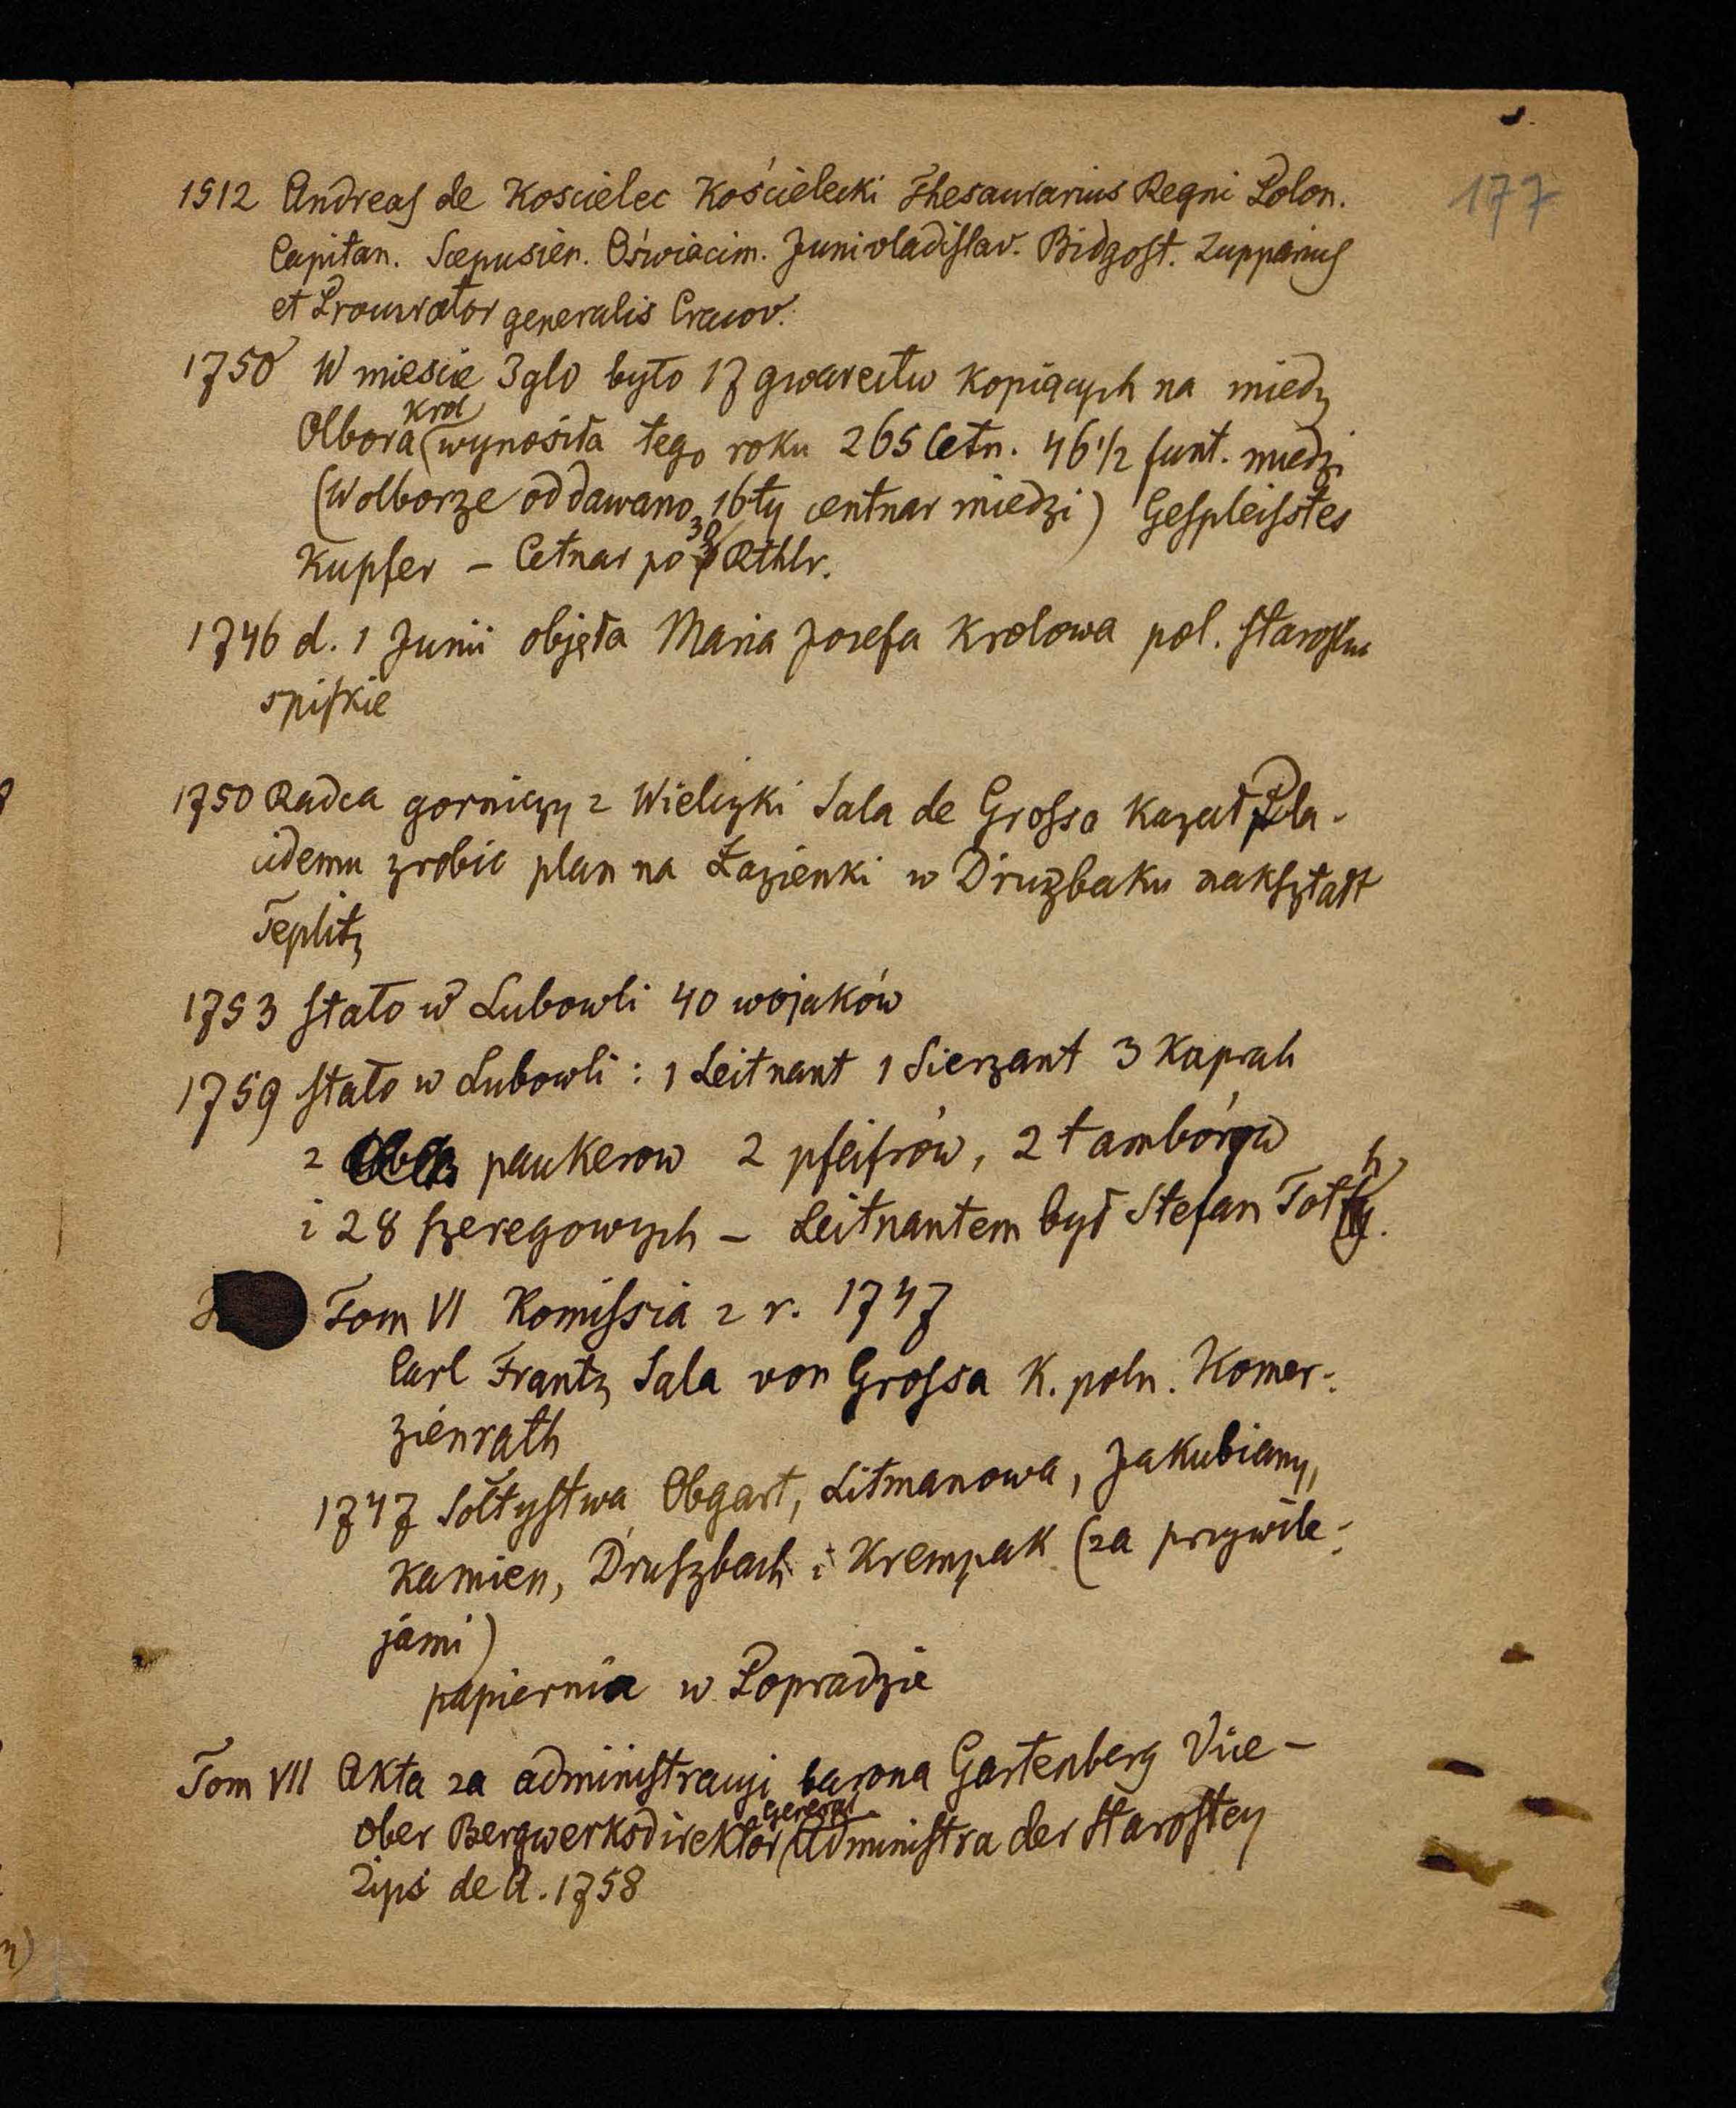 177
1512 Andreas de Koscielec Kościelecki Thesaurarius Regni Polon.
Capitan. Scepusien. Oświecim. Junivladislav. Bidgost. Zupparius
et Procurator generalis Cracov.
1750 W miescie Iglo było 17 gwarectw kopiących na miedz
Olbora krol wynosiła tego roku 265 Cetn. 46 1/2 funt. miedzi
(Wolborze oddawano 16ty centnar miedzi) Gespleisstes
Kupfer – Cetnar po 30 Rthlr.
1746 d. 1 Junii objęła Maria Josefa Krolowa pol. starostwo
spiskie
1750 Radca gorniczy z Wieliczki Sala de Grossa Kazał Pla-
cidemu zrobic plan na Łazienki w Druzbaku nakształt
Teplitz
1753 stało w Lubowli 40 wojaków
1759 stało w Lubowli : 1 Leitnant 1 Sierzant 3 Kaprali
2 paukerow 2 pfeifrów, 2 tambórów
i 28 szeregowych – Leitnantem był Stefan Toth.
Tom VI Komissia z r. 1747
Carl Frantz Sala von Grossa K. poln. Komer-
zienrath
1747 Sołtystwa Obgart, Litmanowa, Jakubiany,
Kamien, Druszbach i Krempak (za przywile-
jami)
papiernia w Popradzie
Tom VII Akta za administracyi barona Gartenberg Vice-
Ober Bergwerksdirektor General Administra der Starostey
Zips de A. 1758